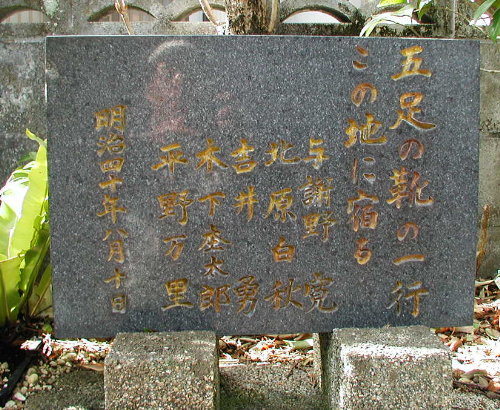 五足の靴の一行
この地に宿る
与謝野 寛
北原白秋
吉井 勇
木下杢太郎
平野万里
明治四十年八月十日